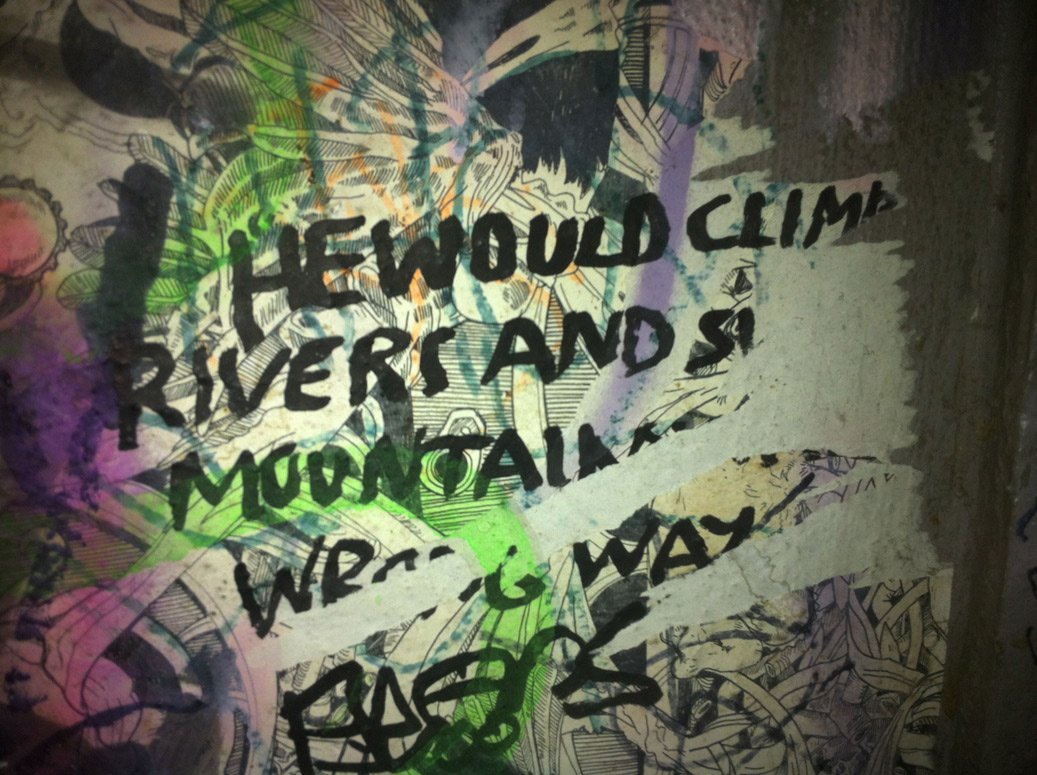 HE WOULD CLIMB
RIVERS AND
MOUNTAIN
WRONG WAY